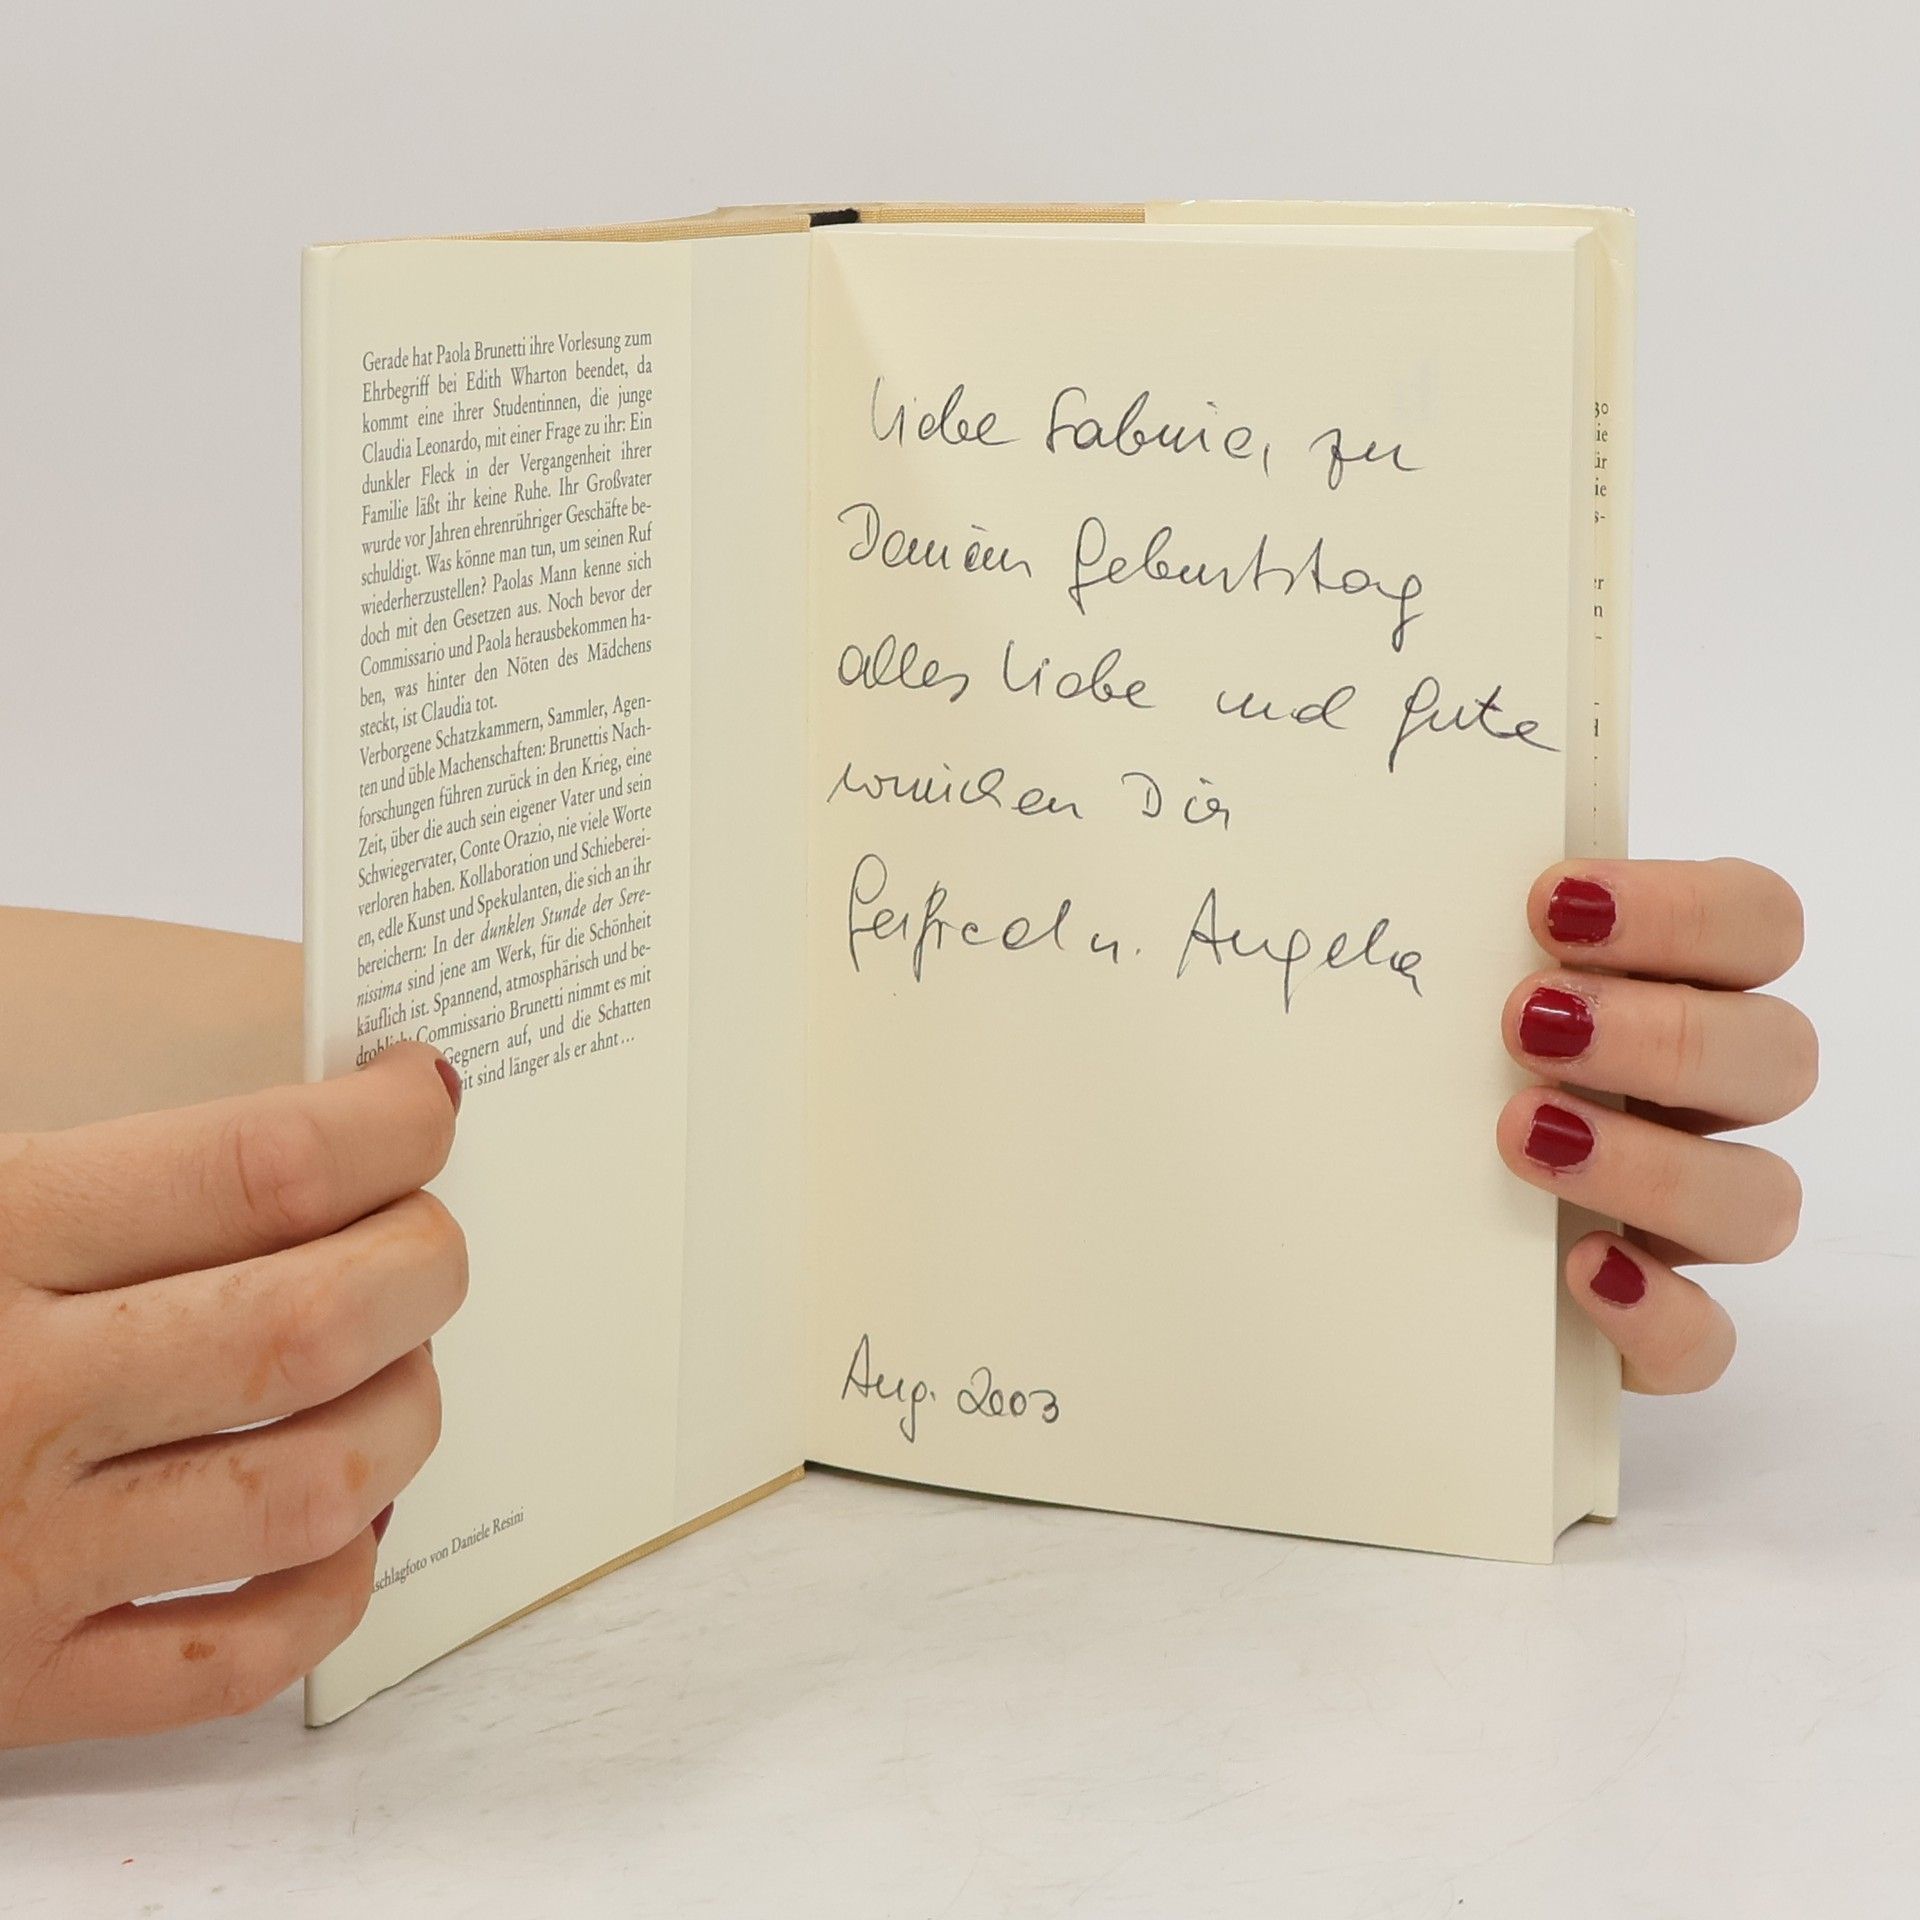 Gerade hat Paola Brunetti ihre Vorlesung zum
Ehrbegriff bei Edith Wharton beendet, da
kommt eine ihrer Studentinnen, die junge
Claudia Leonardo, mit einer Frage zu ihr: Ein
dunkler Fleck in der Vergangenheit ihrer
Familie läßt ihr keine Ruhe. Ihr Großvater
wurde vor Jahren ehrenrühriger Geschäfte be-
schuldigt. Was könne man tun, um seinen Ruf
wiederherzustellen? Paolas Mann kenne sich
doch mit den Gesetzen aus. Noch bevor der
Commissario und Paola herausbekommen ha-
ben, was hinter den Nöten des Mädchens
steckt, ist Claudia tot.
Verborgene Schatzkammern, Sammler, Agen-
ten und üble Machenschaften: Brunettis Nach-
forschungen führen zurück in den Krieg, eine
Zeit, über die auch sein eigener Vater und sein
Schwiegervater, Conte Orazio, nie viele Worte
verloren haben. Kollaboration und Schieberei-
en, edle Kunst und Spekulanten, die sich an ihr
bereichern: In der dunklen Stunde der Sere-
nissima sind jene am Werk, für die Schönheit
käuflich ist. Spannend, atmosphärisch und be-
Commissario Brunetti nimmt es mit
Gegnern auf, und die Schatten
sind länger als er ahnt...
schlagfoto von Daniele Resini
Liebe Sabine, zu
Deinem Geburtstag
alles Liebe und Gute
wünschen Dir
u. Angela
Aug. 2003
30
ie
ür
ie
s-
er
n
-
-
d